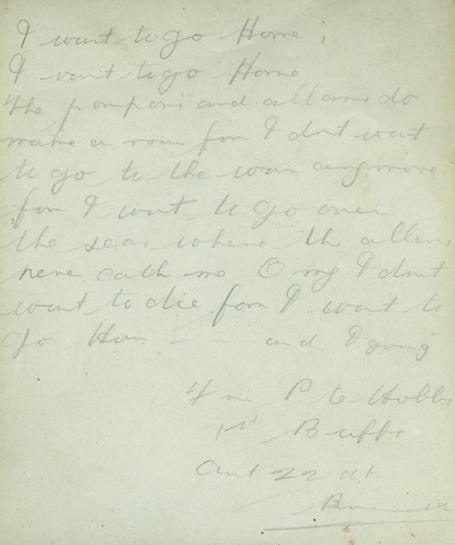 I want to go Home ;
I want to go Home
The pompoms and allams do
make a roar for I dont want
to go to the war anymore
for I want to go over
the seas where the allems
never catch me O my I dont
want to die for I want to
go Hom - - and I going
Pte Hobbs
1st Buffs
22